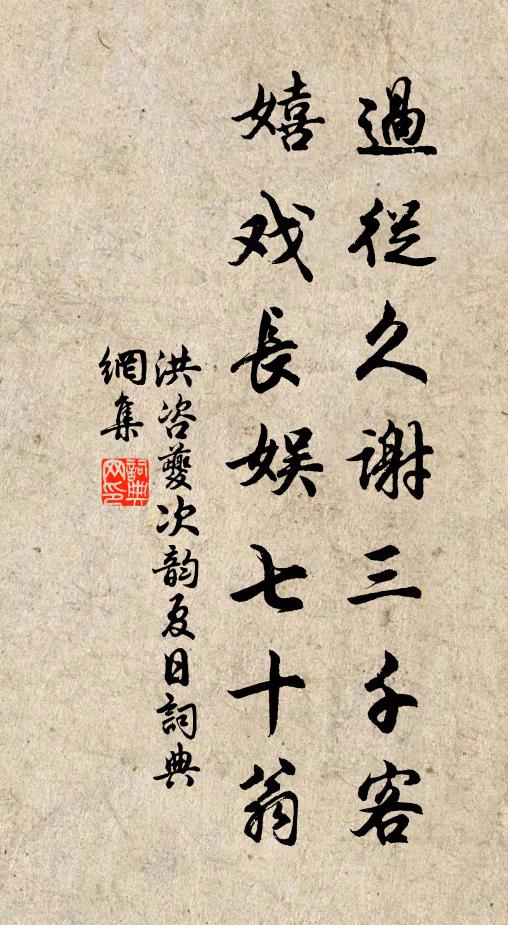 過從久谢三千客
嬉戏長娱七十翁
洪咨夔次韵夏日詞典
網集
詞典網印